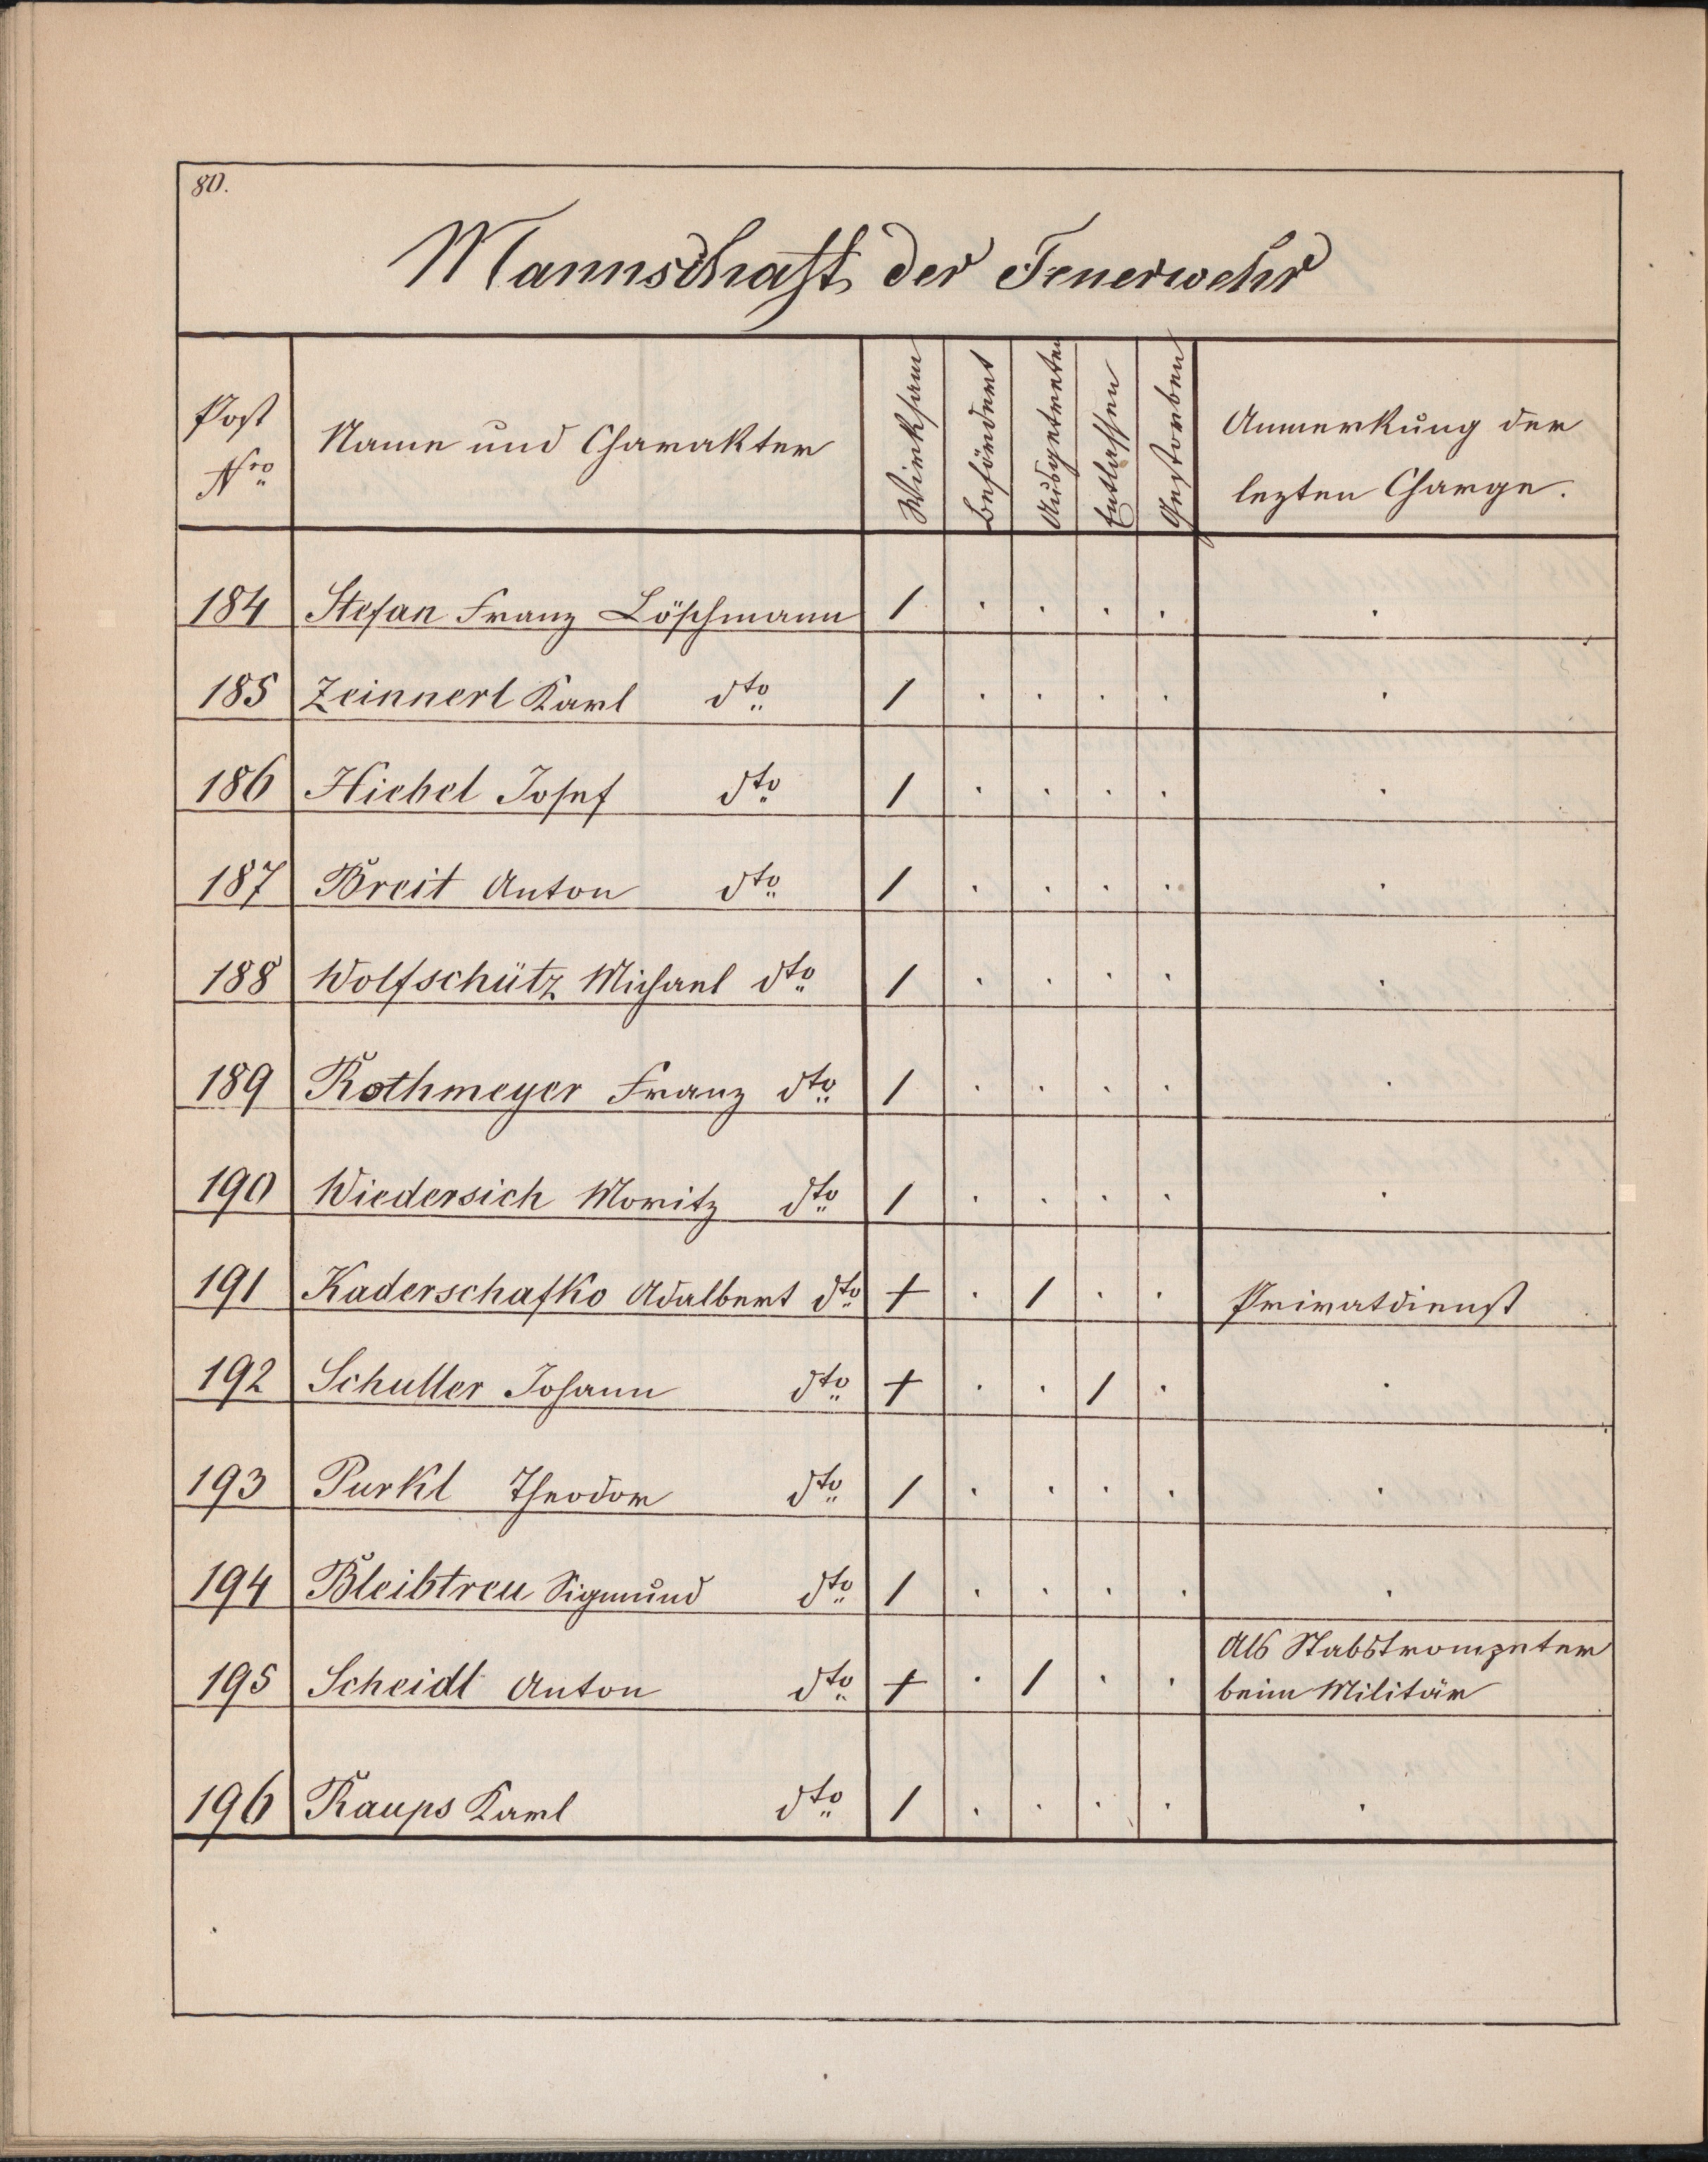 80.
Mannschaft der Feuerwehr
Post Nro
Name und Charakter
Wirksam
Befördert
Ausgetreten
Entlassen
Gestorben
Anmerkung der
lezten Charge.
184 Stefan Franz Löschmann 1 . . . . .
185 Zeinnerl Karl dto 1 . . . . .
186 Hiebel Josef dto 1 . . . . .
187 Breit Anton dto 1 . . . . .
188 Wolfschütz Michael dto 1 . . . . .
189 Rothmeyer Franz dto 1 . . . . .
190 Wiedersich Moritz dto 1 . . . . .
191 Kaderschafko Adalbert dto + . 1 . . Privatdienst
192 Schuller Johann dto + . . 1 . .
193 Purkl Theodor dto 1 . . . . .
194 Bleibtreu Sigmund dto 1 . . . . .
195 Scheidl Anton dto + . 1 . . Als Stabstrompeter
beim Militär
196 Raups Karl dto 1 . . . . .